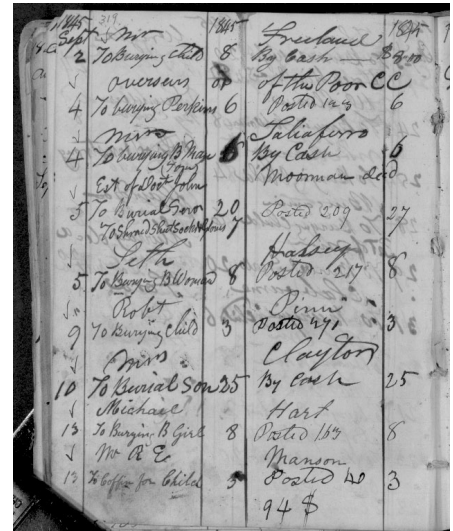 1845 319 1845 1845
Sept Mr Freeland
2 To Burying Child 8 By Cash $8.00
Overseurs of of the Poor CC
4 To burying Perkins 6 Posted 6
Mrs Taliaferro
4 To burying B Man 6 By Cash 6
Est of Doct John Moorman dead
5 To Burial Servt 20 Posted 209 27
To Shroud 7
Seth Halsey
5 To Burying B Woman 8 Posted 217 8
Robt Pinn
9 To Burying Child 3 Posted 271 3
Mrs Clayton
10 To Burial Son 25 By Cash 25
Michael Hart
13 To Burying B Girl 8 Posted 163 8
W R E Manson
13 To Coffin for Child 3 Posted 40 3
94 $